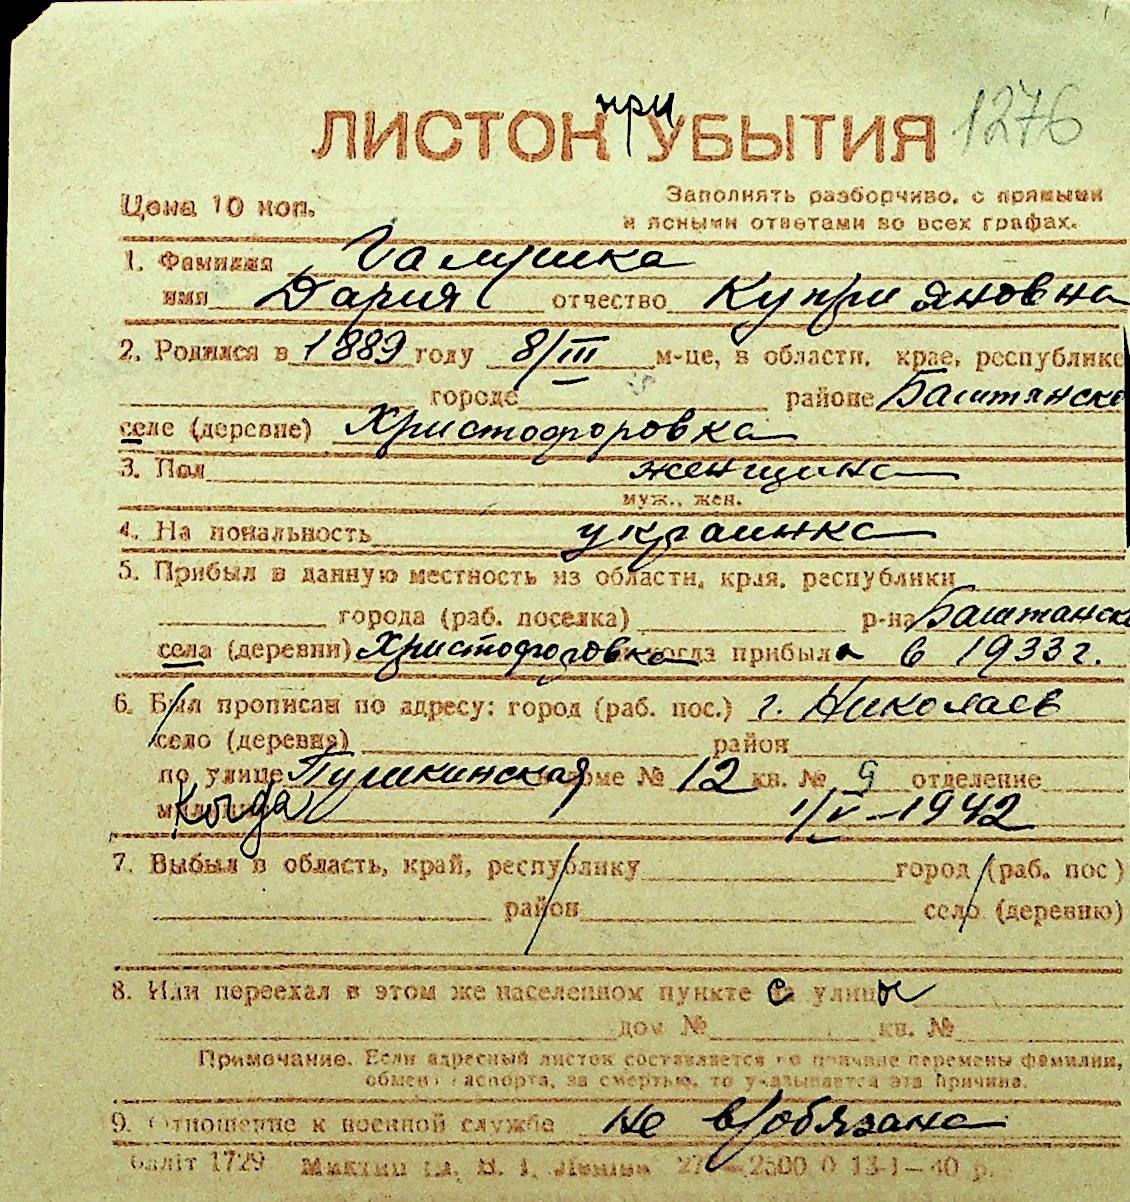 при
ЛИСТОК УБЫТИЯ 1276
Цена 10 коп. Заполнять разборчиво, с прямыми
и ясными ответами во всех графах.
1. Фамилия
имя Дария отчество Куприяновна
2. Родился в 1889 году 8/III м-це, в области, крае, республике
городе районе Баштанско
селе (деревне) Христофоровка
3. Пол женщина
муж., жен.
4. Национальность украинка
5. Прибыл в данную местность из области, края, республики
города (раб. поселка) р-на Баштанско
села (деревни) Христофоровка когда прибыла в 1933 г.
6. Был прописан по адресу: город (раб. пос.) г. Николаев
село (деревня) район
по улице Пушкинская доме № 12 кв. № 9 отделение
милиции Когда 1/V-1942
7. Выбыл в область, край, республику город (раб. пос)
район село (деревню)
8. Или переехал в этом же населенном пункте с улицы
дом № кв. №
Примечание. Если адресный листок составляется по причине перемены фамилии,
обмена паспорта, за смертью, то указывается эта причина.
9. Отношение к военной службе не в/обязана
1729 2500 0 13-I-40 р.